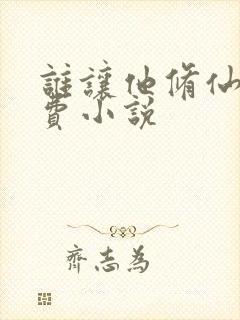 誰讓他脩仙
費小說
齊志為